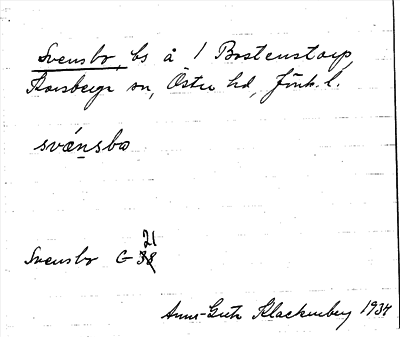 Svensbo, bs å 1 Bostenstorp,
Korsberga sn, Östra hd, Jönk. l.
svǽnsbo
21
Svensbo G 38
Anna-Greta Klackenberg 1934